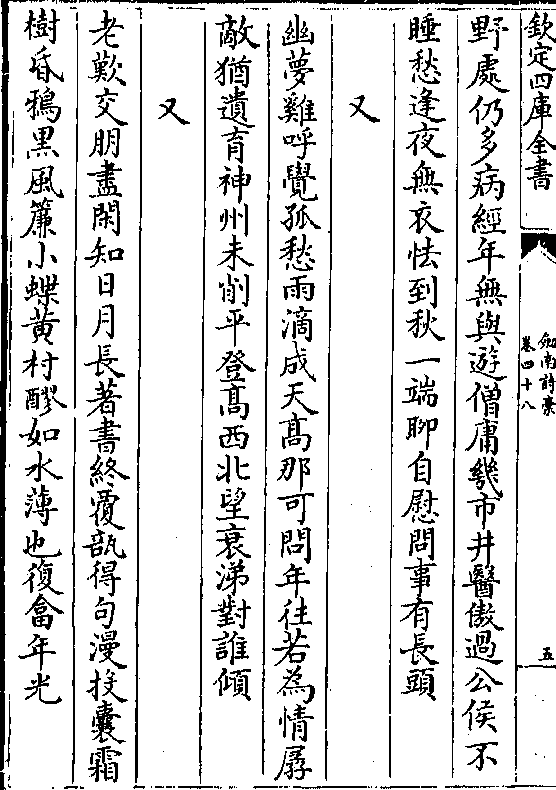 欽定四庫全書
劍南詩藁
卷四十八
五
野處仍多病經年無與遊僧庸幾市井醫傲過公侯不
睡愁逢夜無衣怯到秋一端聊自慰問事有長頭
又
幽夢雞呼覺孤愁雨滴成天髙那可問年往若為情孱
敵猶遺育神州未削平登髙西北望衰涕對誰傾
又
老歎交朋盡閑知日月長著書終覆瓿得句漫投囊霜
樹昏鴉黒風簾小蝶黄村醪如水薄也復畬年光